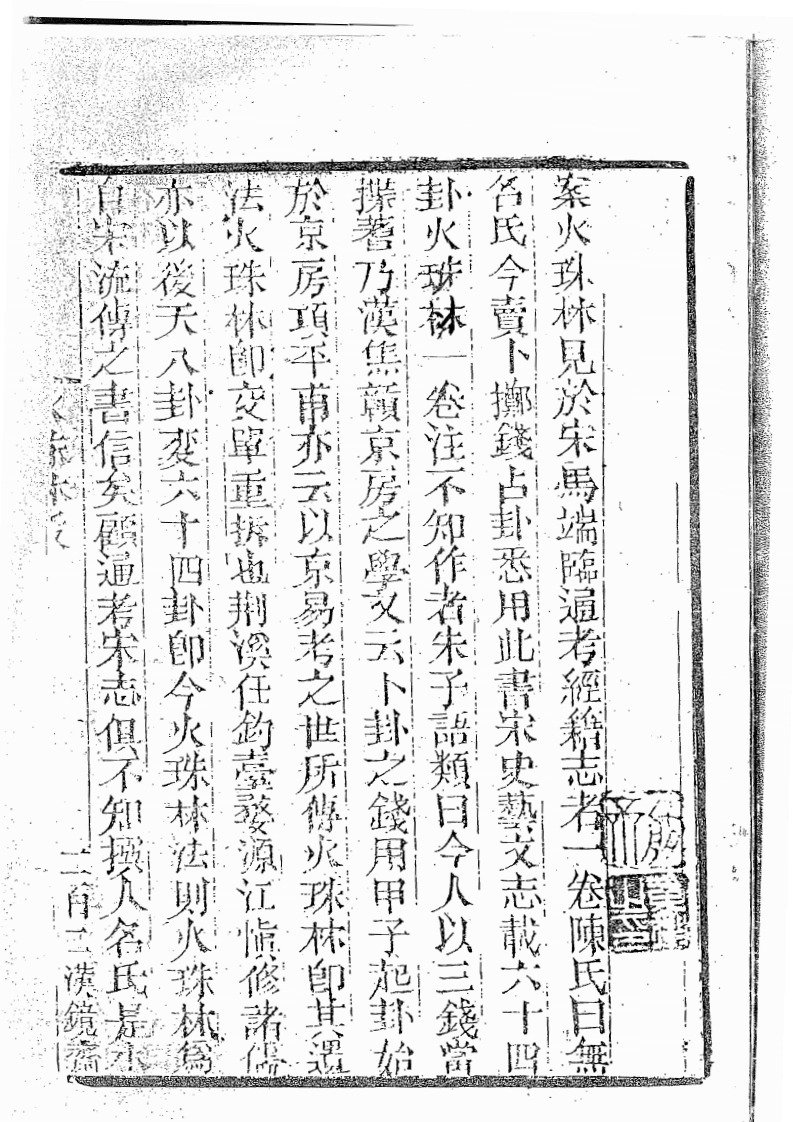 案火珠林見於宋馬端臨通考經籍志者一卷陳氏曰無
名氏今賣卜擲錢占卦悉用此書宋史藝文志載六十四
卦火珠林一卷注不知作者朱子語類曰今人以三錢當
揲蓍乃漢焦贛京房之學又云卜卦之錢用甲子起卦始
於京房項平甫亦云以京易考之世所傳火珠林即其遺
法火珠林即交單重拆也荆溪任釣臺婺源江愼修諸儒
亦以後天八卦変六十四卦即今火珠林法則火珠林爲
自宋流傳之書信矣顧通考宋志俱不知撰人名氏是
火珠林
二百二漢鏡齋